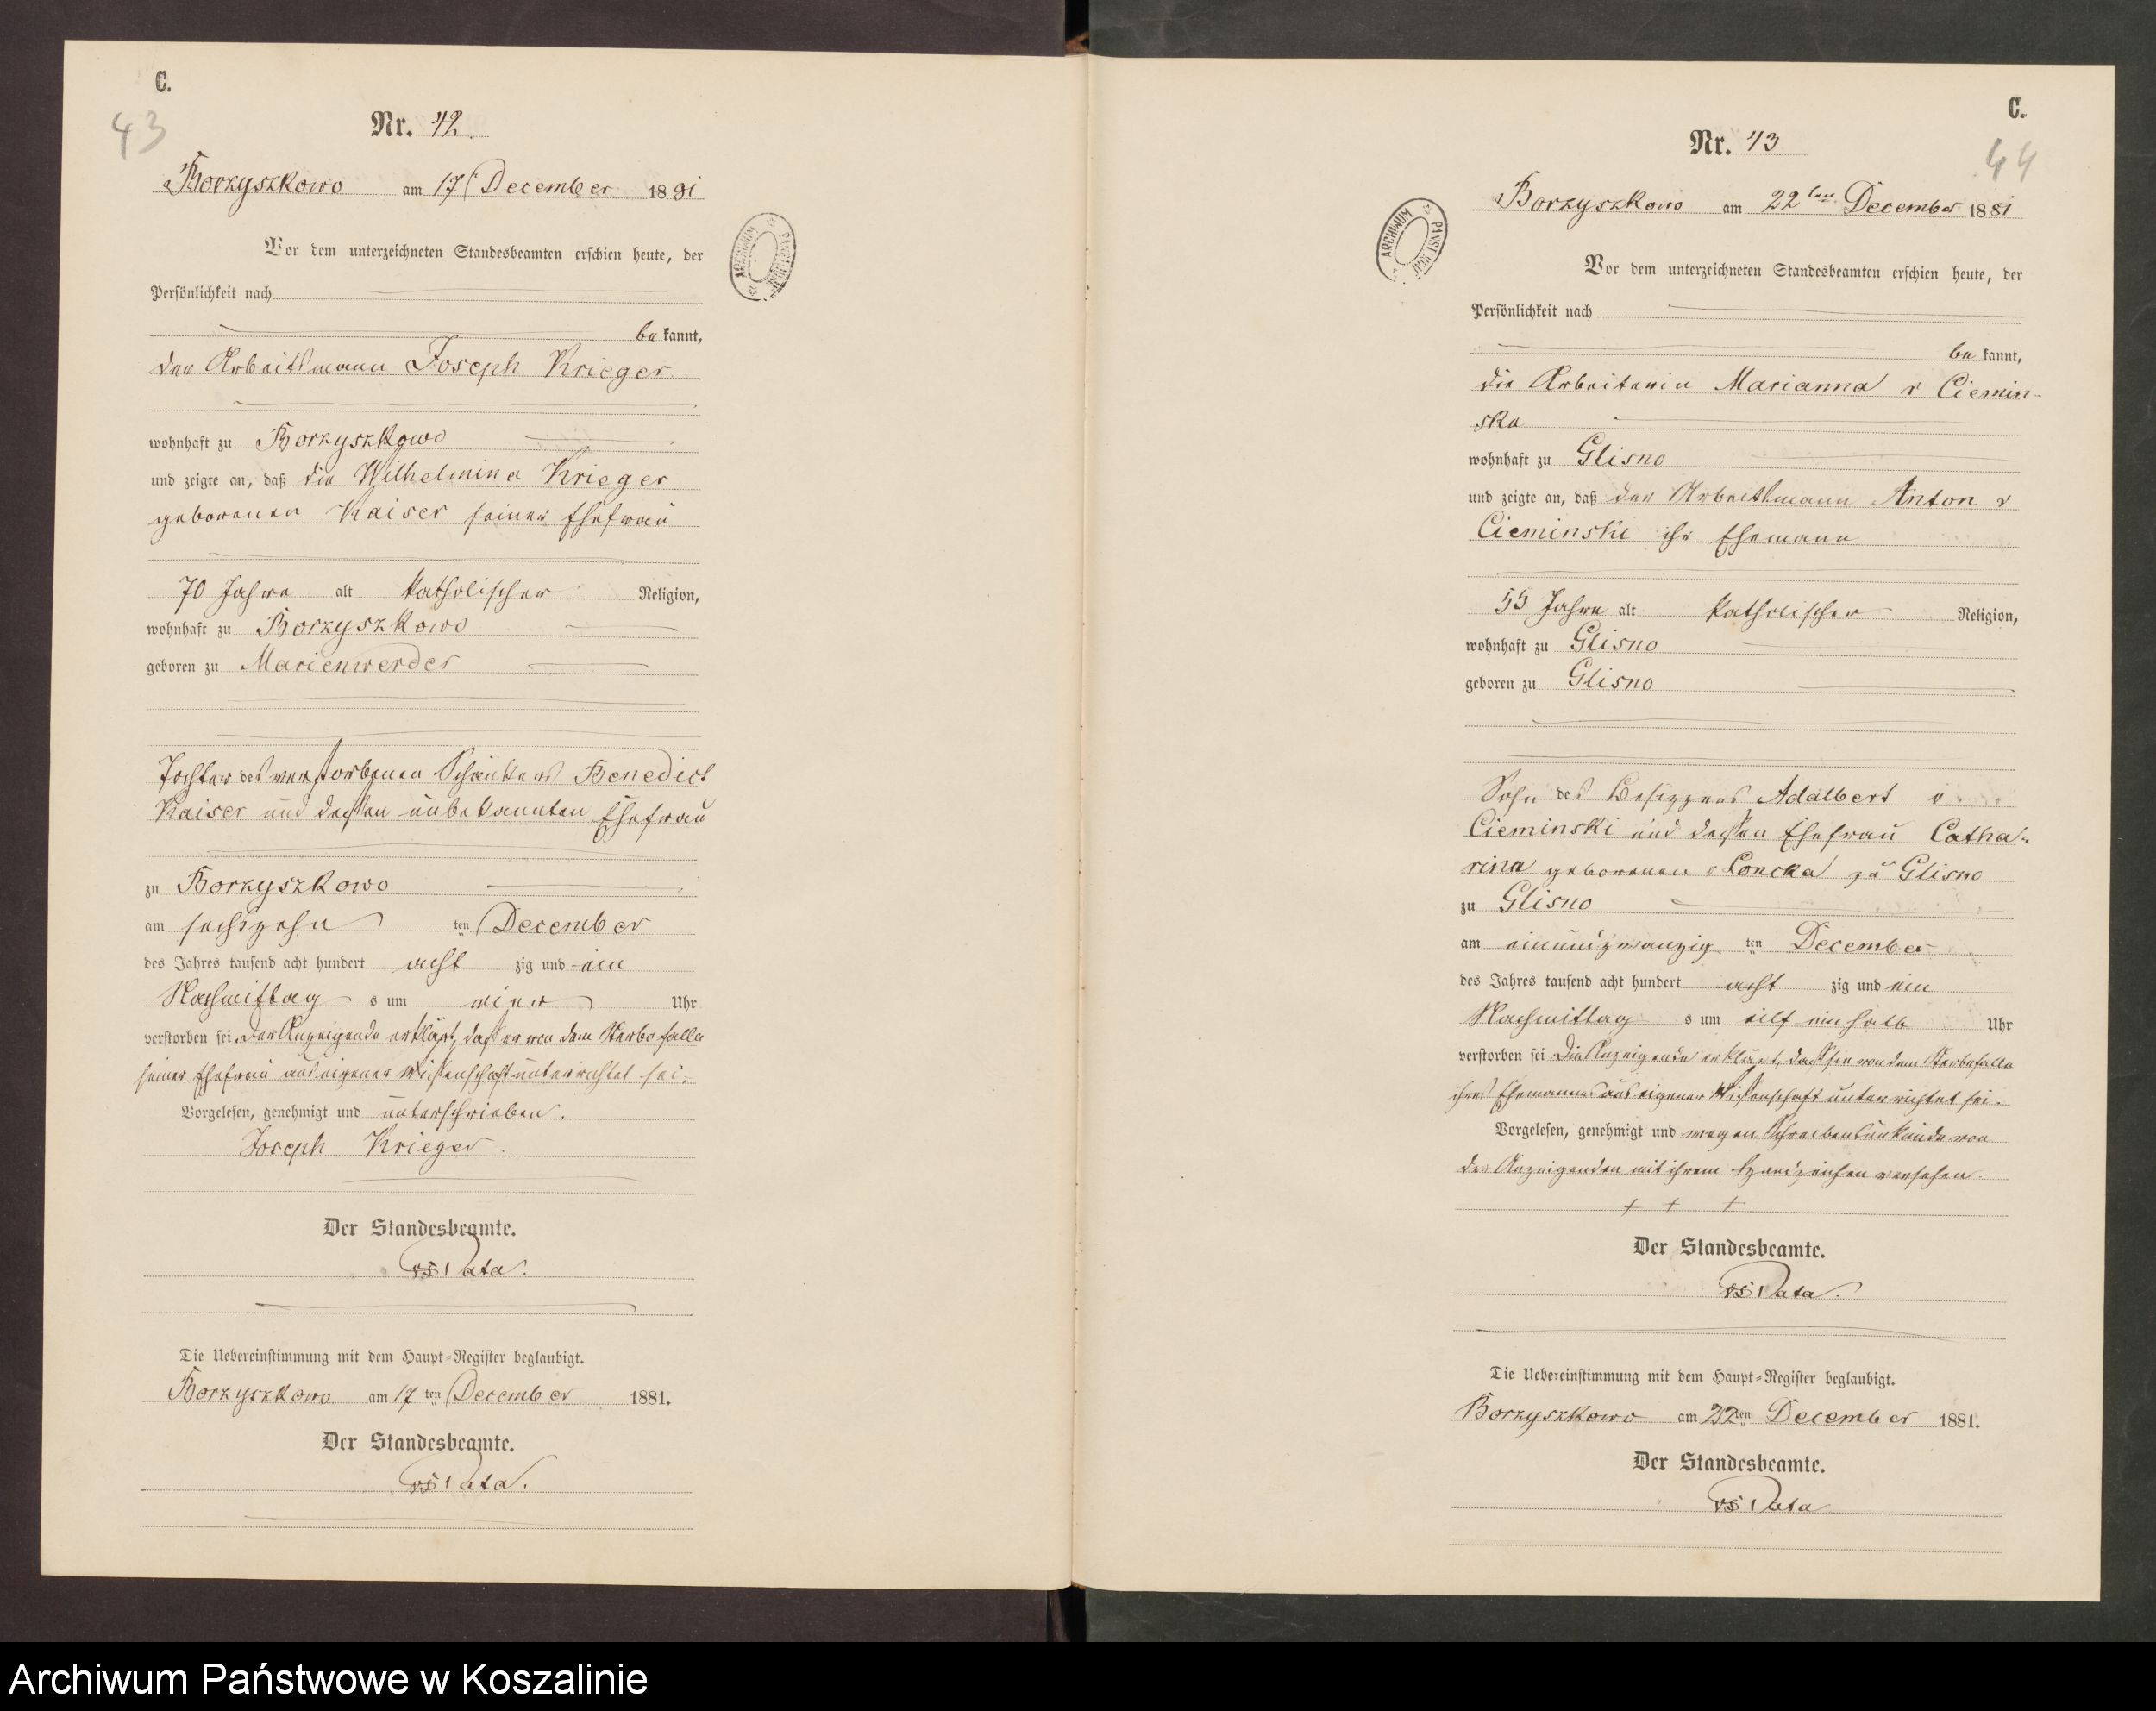 C.
43
Nr. 42.
Borzyszkowo am 17t December 1881
Vor dem unterzeichneten Standesbeamten erschien heute, der
Persönlichkeit nach
be kannt,
der Arbeitsmann Joseph Krieger
wohnhaft zu Borzyszkowo
und zeigte an, daß die Wilhelmina Krieger
geborenen Kaiser seiner Ehefrau
70 Jahre alt katholischer Religion,
wohnhaft zu Borzyszkowo
geboren zu Marienwerder
Tochter des verstorbenen Schänkers Benedict
Kaiser und dessen unbekannten Ehefrau
zu Borzyszkowo
am sechszehn ten December
des Jahres tausend acht hundert acht zig und ein
Nachmittag s um vier Uhr
verstorben sei. Der Anzeigende erklärt, daß er von dem Sterbefalle
seiner Ehefrau aus eigener Wissenschaft unterrichtet sei.
Vorgelesen, genehmigt und unterschrieben.
Joseph Krieger.
Der Standesbeamte.
Pata.
Die Uebereinstimmung mit dem Haupt-Register beglaubigt.
Borzyszkowo am 17 ten December 1881.
Der Standesbeamte.
Pata.
C.
44
Nr. 43
Borzyszkowo am 22 ten December 1881
Vor dem unterzeichneten Standesbeamten erschien heute, der
Persönlichkeit nach
be kannt,
die Arbeiterin Marianna v Ciemin-
ska
wohnhaft zu Glisno
und zeigte an, daß der Arbeitsmann Anton v
Cieminski ihr Ehemann
55 Jahre alt katholischer Religion,
wohnhaft zu Glisno
geboren zu Glisno
Sohn des Besitzers Adalbert v
Cieminski und dessen Ehefrau Catha-
rina geborenen v Loncka zu Glisno
zu Glisno
am einundzwanzig ten December
des Jahres tausend acht hundert acht zig und ein
Nachmittag s um eilf ein halb Uhr
verstorben sei. Die Anzeigende erklärt, daß sie von dem Sterbefalle
ihres Ehemannes aus eigener Wissenschaft unterrichtet sei.
Vorgelesen, genehmigt und wegen Schreibensunkunde von
der Anzeigenden mit ihrem Handzeichen versehen.
+ + +
Der Standesbeamte.
Pata.
Die Uebereinstimmung mit dem Haupt-Register beglaubigt.
Borzyszkowo am 22ten December 1881.
Der Standesbeamte.
Pata
Archiwum Państwowe w Koszalinie